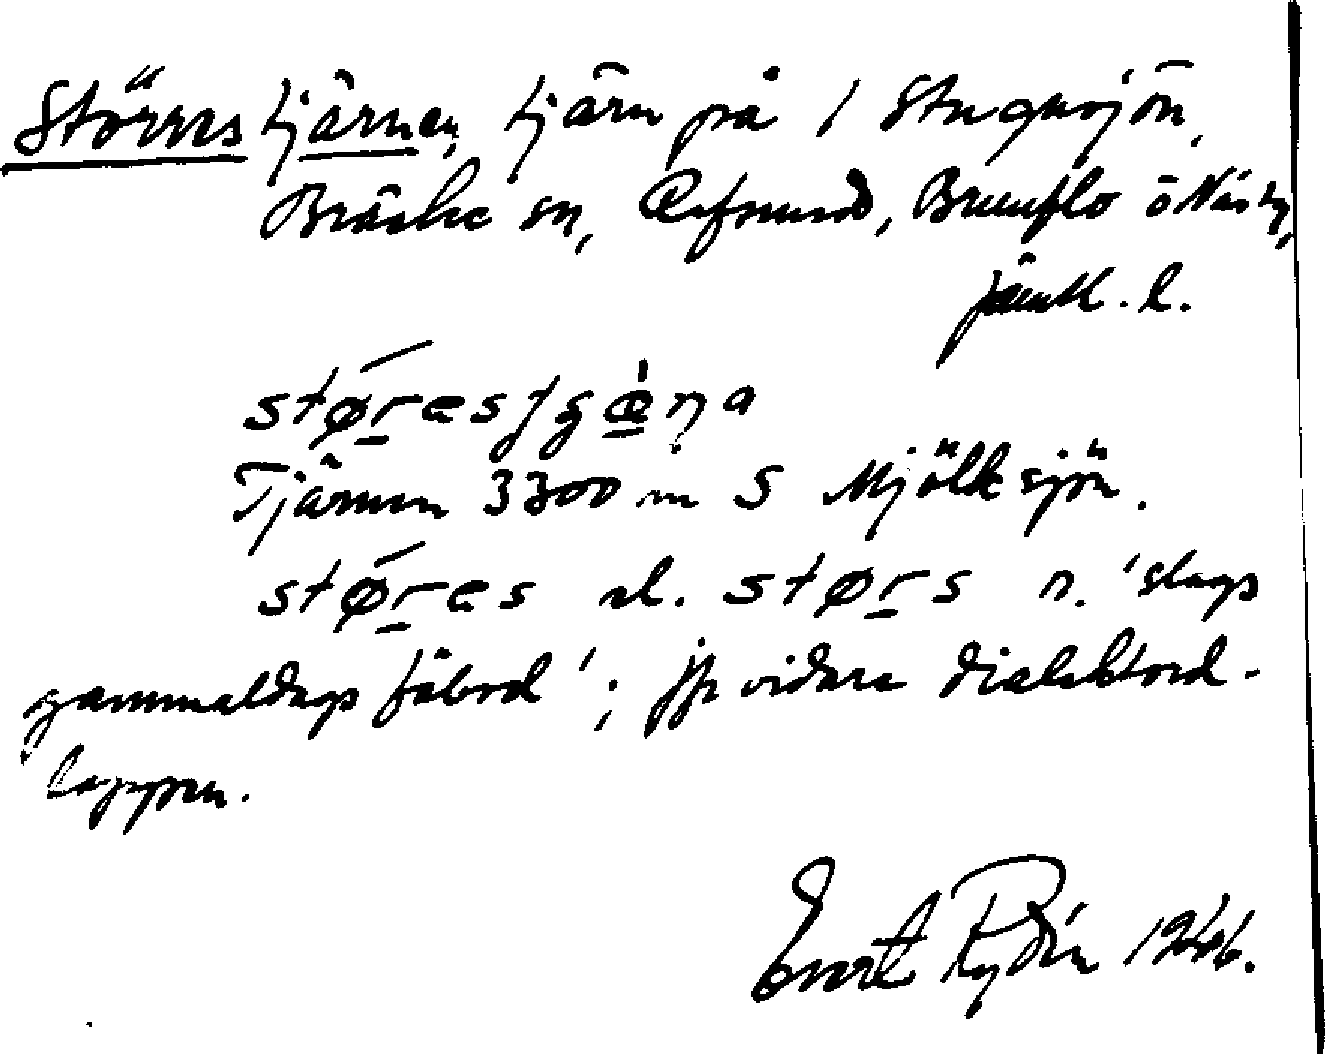 Störrestjärnen, tjärn på 1 Stugusjön,
Bräcke sn, Refsund, Brunflo o Näs tg,
Jämtl. l.
støresjgæna
Tjärnen 3300 m S Mjölksjön.
støres el. størs n. 'slags
gammaldags fäbod'; jfr vidare dialektord-
lappen.
Evert Rydén 1946.